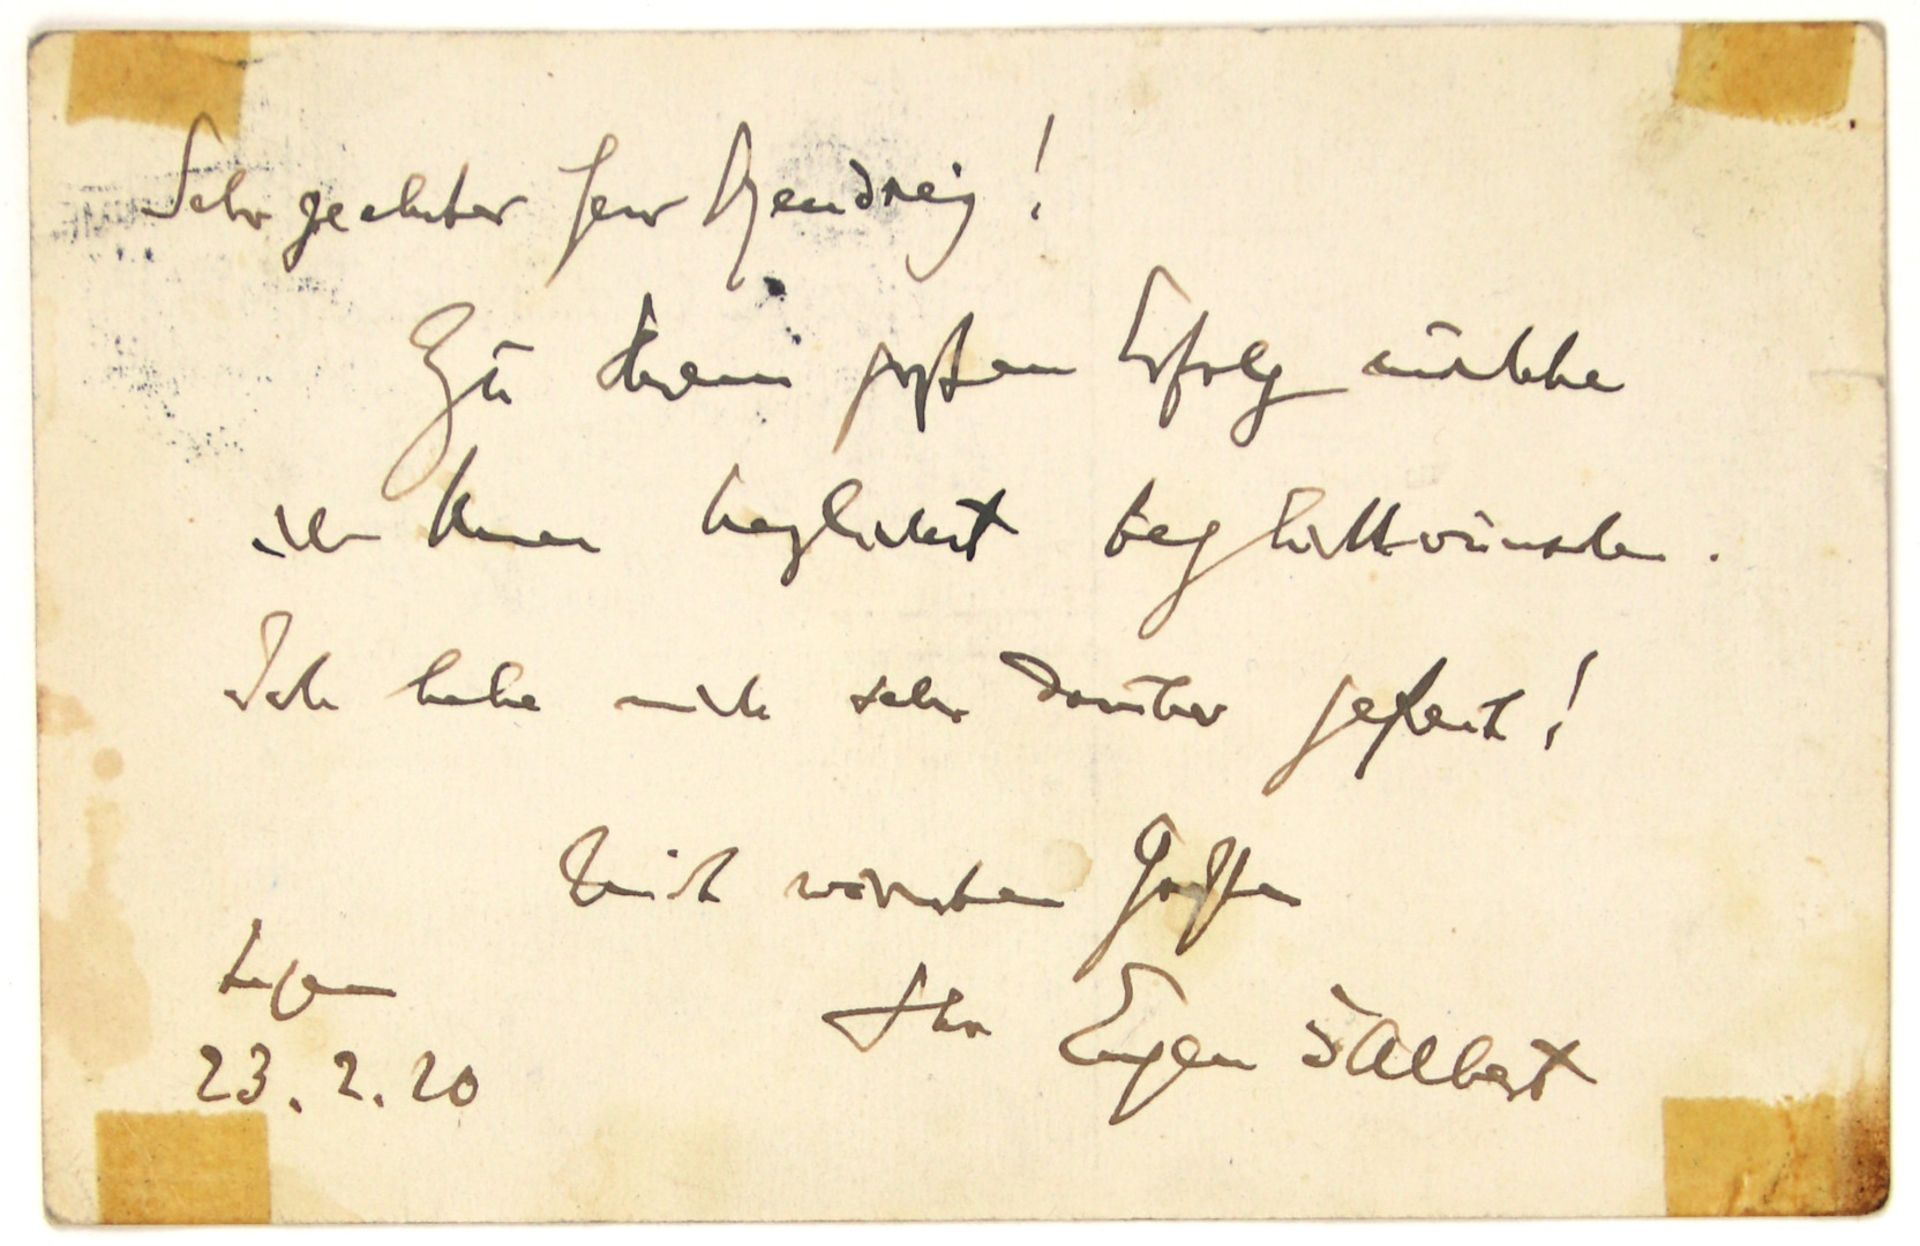 Sehr geehrter Herr Hendreig!
Zu Ihrem großen Erfolg möchte
ich Ihnen herzlichst beglückwünschen.
Ich habe mich sehr darüber gefreut!
Mit wärmsten Grüßen
Luzern
Ihr Eugen d'Albert
23.2.20